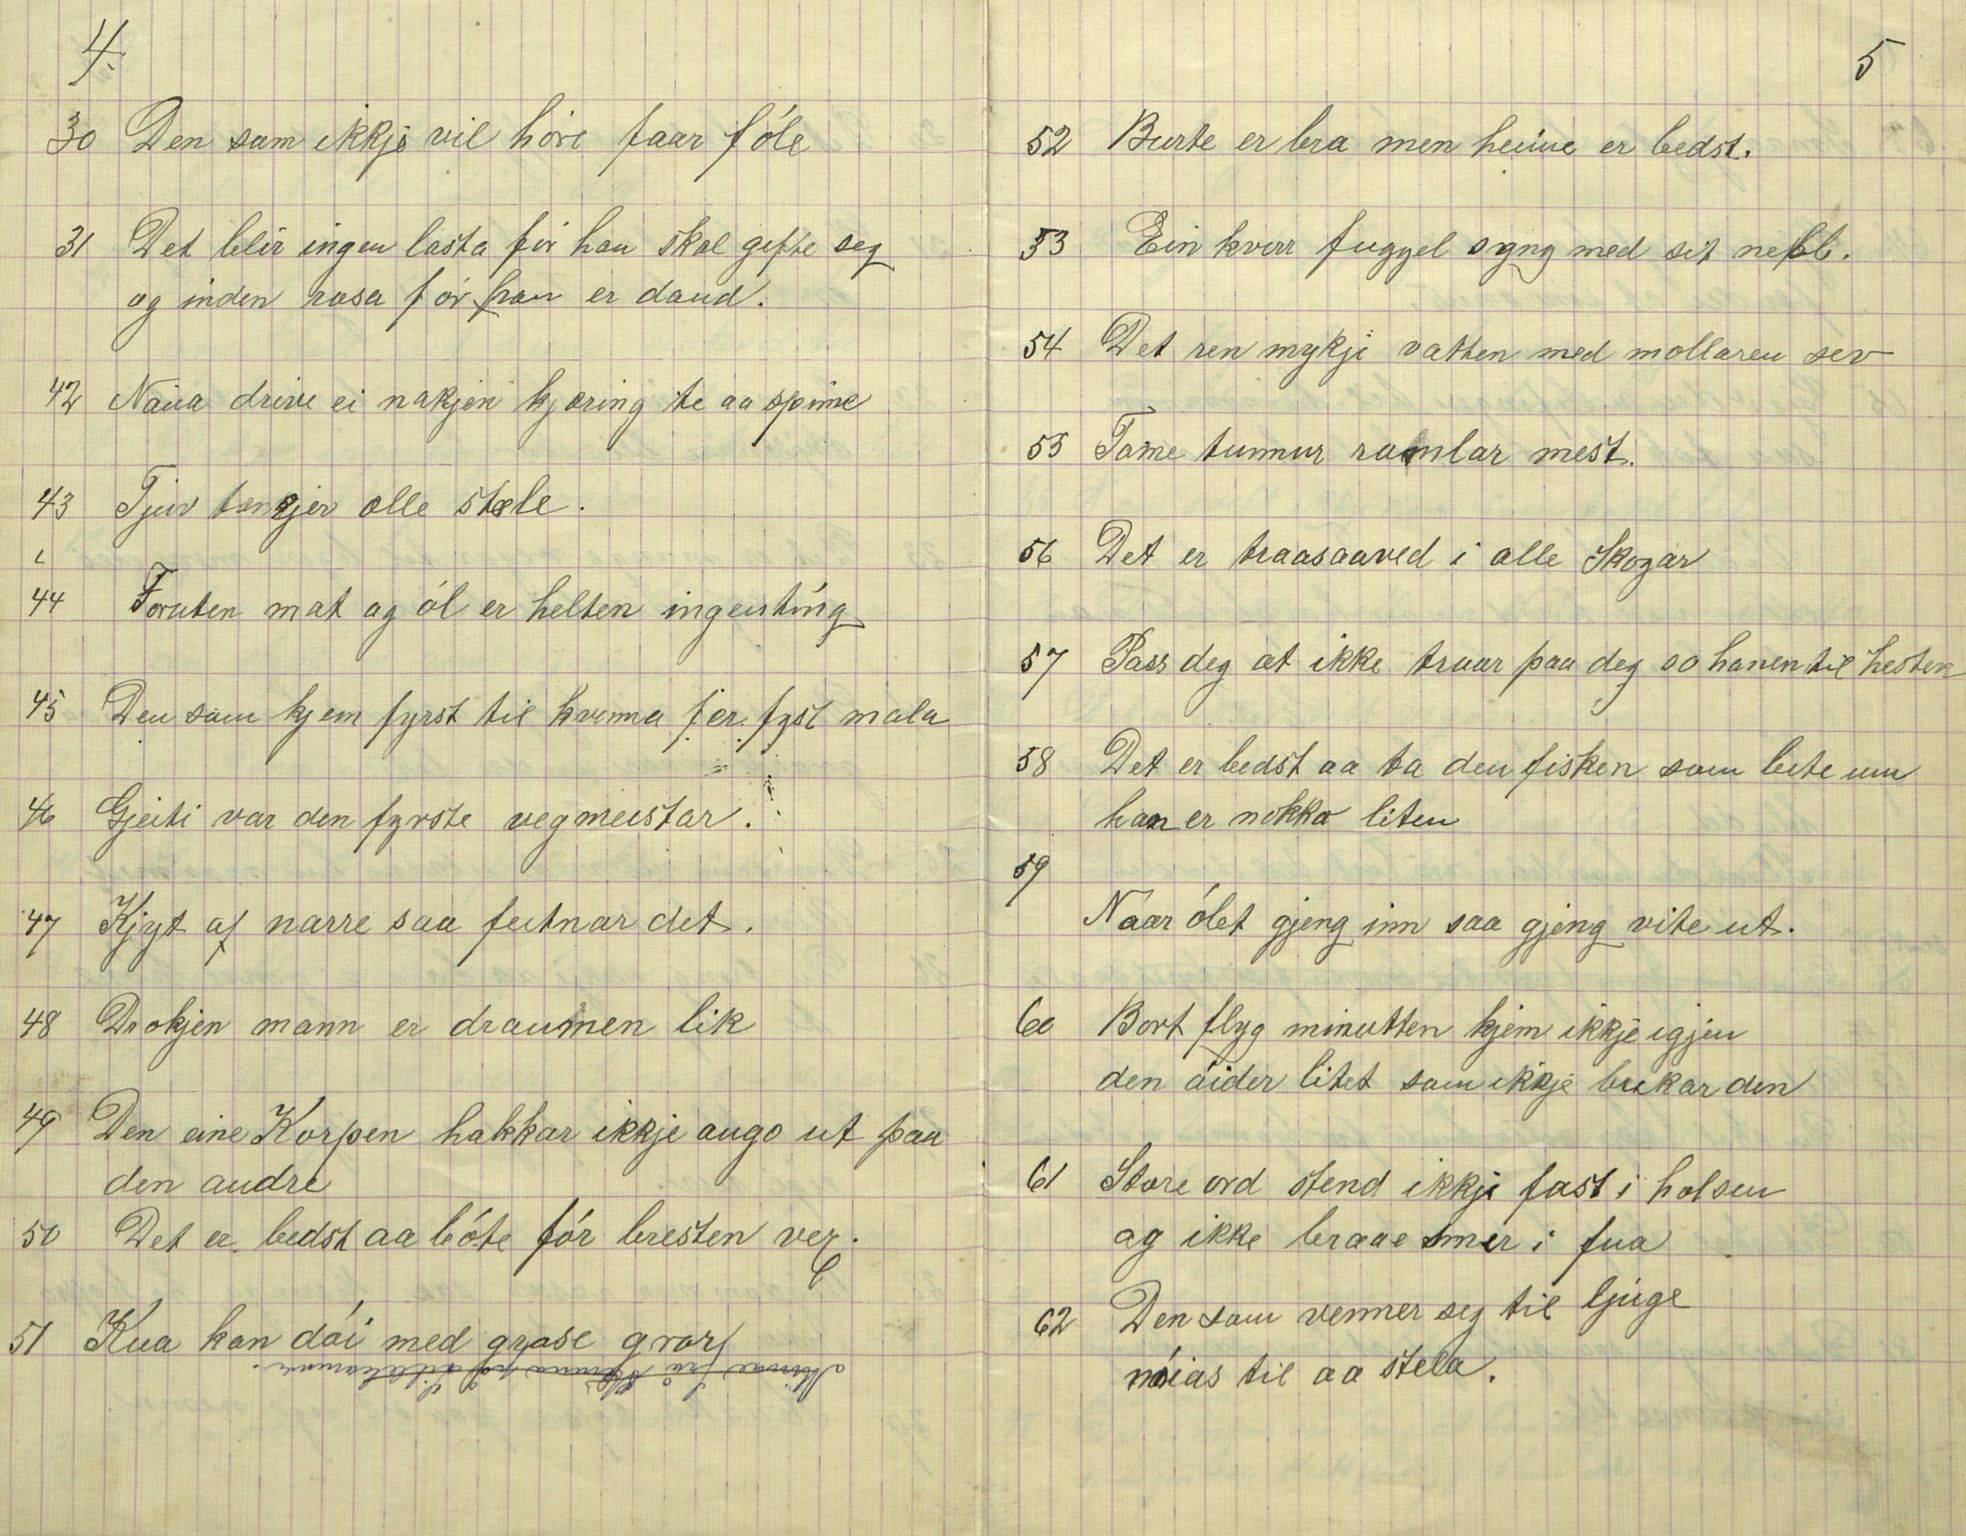 4.
30 Den som ikkje vil höre faar föle
31 Det blir ingen lasta för han skal gifte seg
og inden rosa för han er daud.
42 Naua drive ei nakjen kjæring te aa spinne
43 Tjuv tenkjer alle stæle.
44 Foruten mat og öl er helten ingenting
45 Den som kjem fyrst til kvenna fær fyst mala
46 Gjeiti var den fyrste vegmeistar.
47 Kjyt af narre saa feitnar det.
48 Drokjen mann er draumen lik
49 Den eine Korpen hakkar ikkje augo ut paa
den andre
50 Det er bedst aa böte för bresten ver.
51 Kua kan döi med grase gror
5
52 Burte er bra men heime er bedst.
53 Ein kverr fuggel syng med sit nebb.
54 Det ren mykji vatten med mollaren sev
55 Tome tunnur ramlar mest.
56 Det er traasaaved i alle Skogar
57 Pass deg at ikke truar paa deg so hanen til hesten
58 Det er bedst aa ta den fisken som beite um
han er nokko liten
59
Naar ölet gjeng inn saa gjeng vite ut.
60 Bort flyg minutten kjem ikkje igjen
den öider litet som ikkje brukar den
61 Store ord stend ikkji fast i halsen
og ikke braae smer i fua
62 Den som venner seg til ljuge
nöias til aa stela.